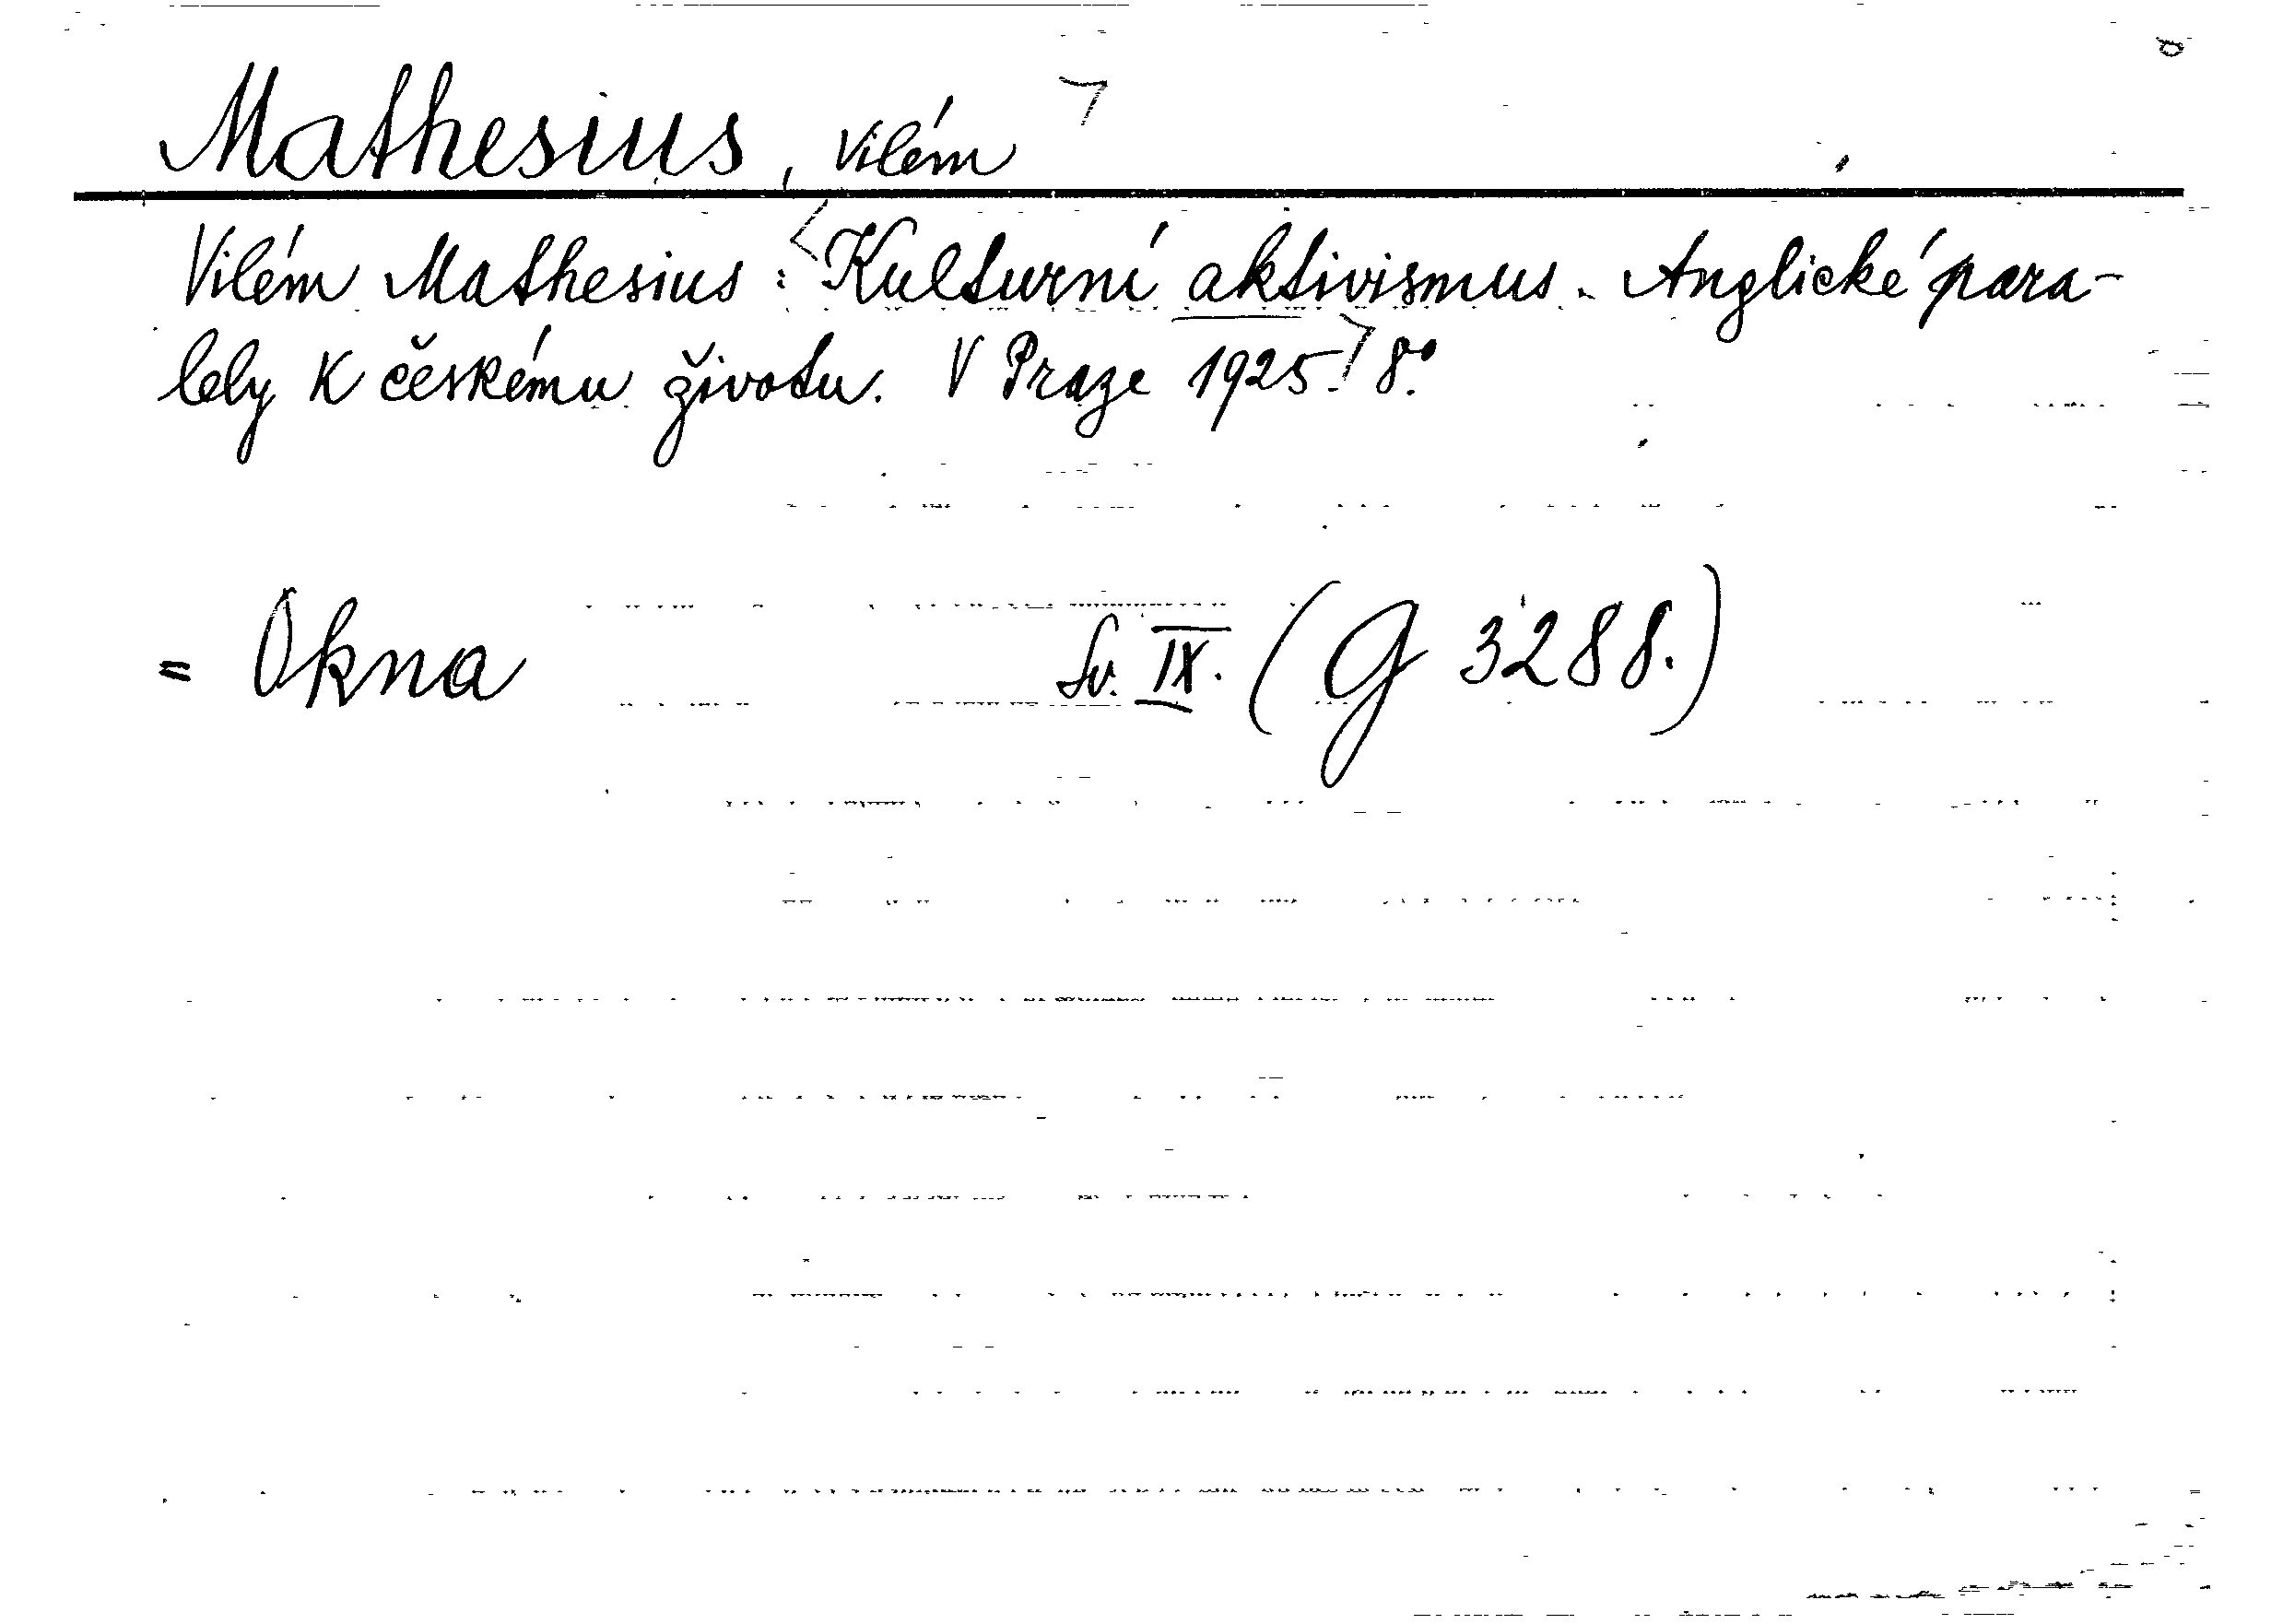 Mathesius, Vilém
Vilém Mathesius: Kulturní aktivismus. Anglické para-
lely k českému životu. V Praze 1925. 8°.
= Okna Sv. IX. (G 3288.)